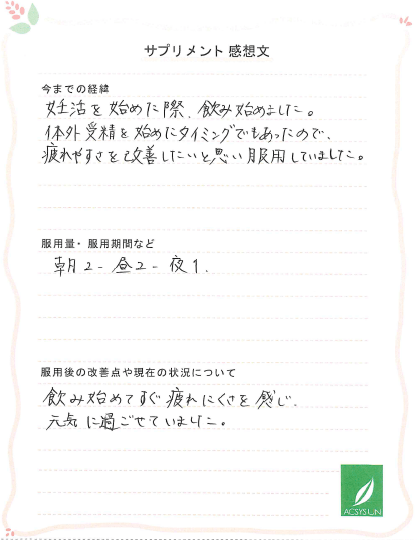 サプリメント 感想文
今までの経緯
妊活を始めた際、飲み始めました。
体外受精を始めたタイミングでもあったので、
疲れやすさを改善したいと思い服用していました。
服用量・服用期間など
朝2- 昼2- 夜1.
服用後の改善点や現在の状況について
飲み始めてすぐ疲れにくさを感じ、
元気に過ごせていました。
ACSYSUN